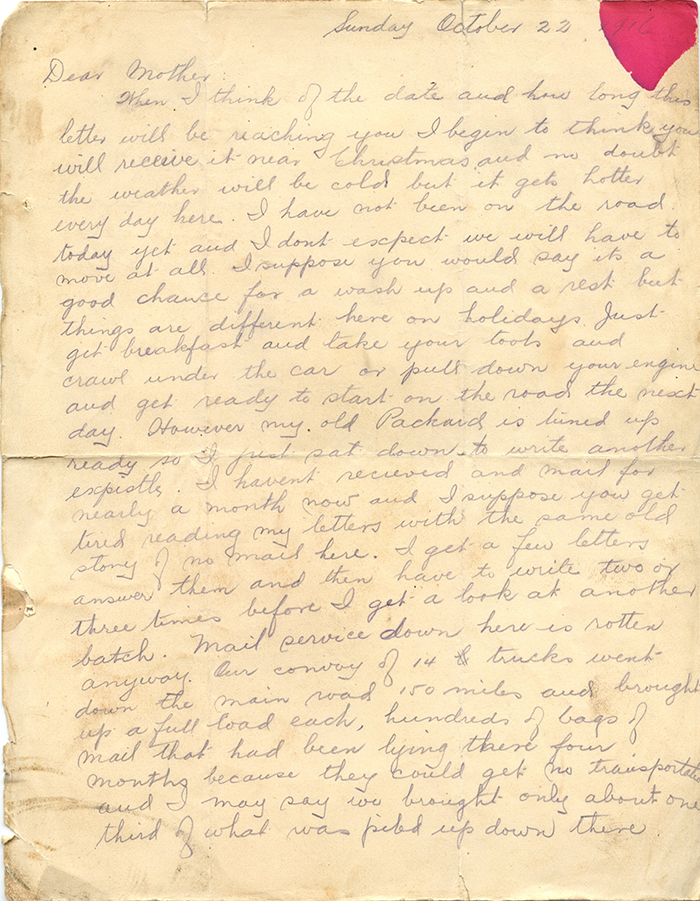 Sunday October 22 1916
Dear Mother
When I think of the date and how long this
letter will be reaching you I begin to think you
will receive it near Christmas and no doubt
the weather will be cold but it gets hotter
every day here. I have not been on the road
today yet and I dont exspect we will have to
move at all. I suppose you would say its a
good chance for a wash up and a rest but
things are different here on holidays. Just
get breakfast and take your tools and
crawl under the car or pull down your engine
and get ready to start on the road the next
day. However my old Packard is tuned up
ready so I just sat down to write another
expistle. I havent recieved and mail for
nearly a month now and I suppose you get
tired reading my letters with the same old
story of no mail here. I get a few letters
answer them and then have to write two or
three times before I get a look at another
batch. Mail service down here is rotten
anyway. Our convoy of 14 trucks went
down the main road 150 miles and brought
up a full load each, hundreds of bags of
mail that had been lying there four
months because they could get no transportati
and I may say we brought only about one
third of what was piled up down there.